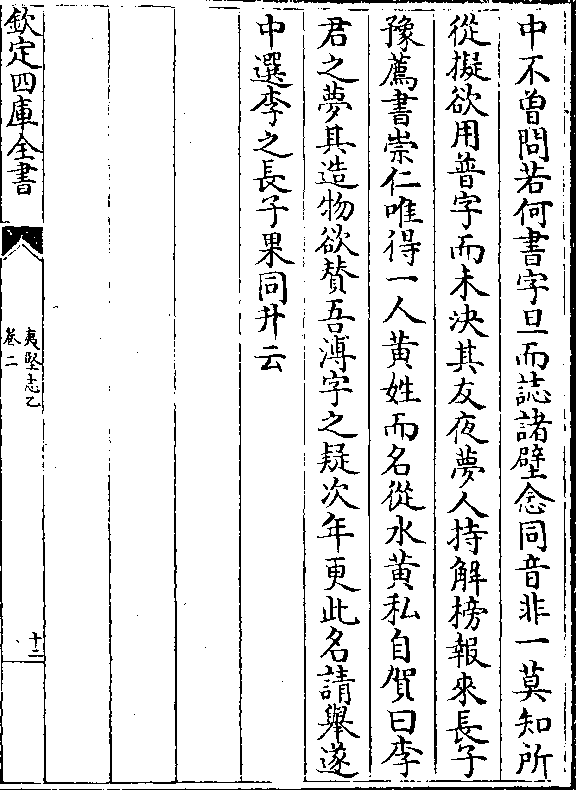 中不曾問若何書字旦而誌諸壁念同音非一莫知所
從擬欲用普字而未決其友夜夢人持解榜報來長子
豫薦書崇仁唯得一人黃姓而名從水黃私自賀曰李
君之夢其造物欲贊吾溥字之疑次年更此名請舉遂
中選李之長子果同升云
欽定四庫全書
夷堅志乙
卷二
十二